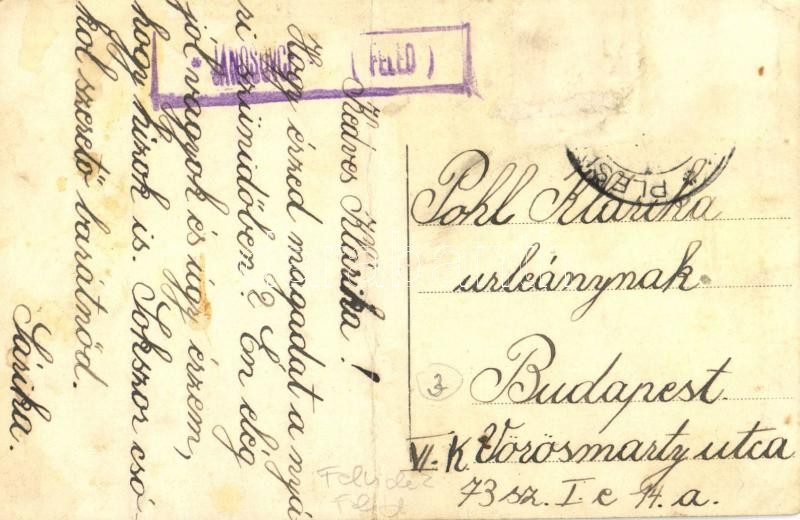 * JÁNOSOVCE ( FELED )
Kedves Klárika!
Hogy érzed magadat a nyá-
ri szünidőben? Én elég
jól vagyok és úgy érzem,
hogy hízok is. Sokszor csó-
kol szerető barátnőd.
Sárika.
Pohl Klárika
urleánynak
Budapest.
VI. K. Vörösmarty utca
73 sz. I. e 14. a.
3
Felvidék
Feled